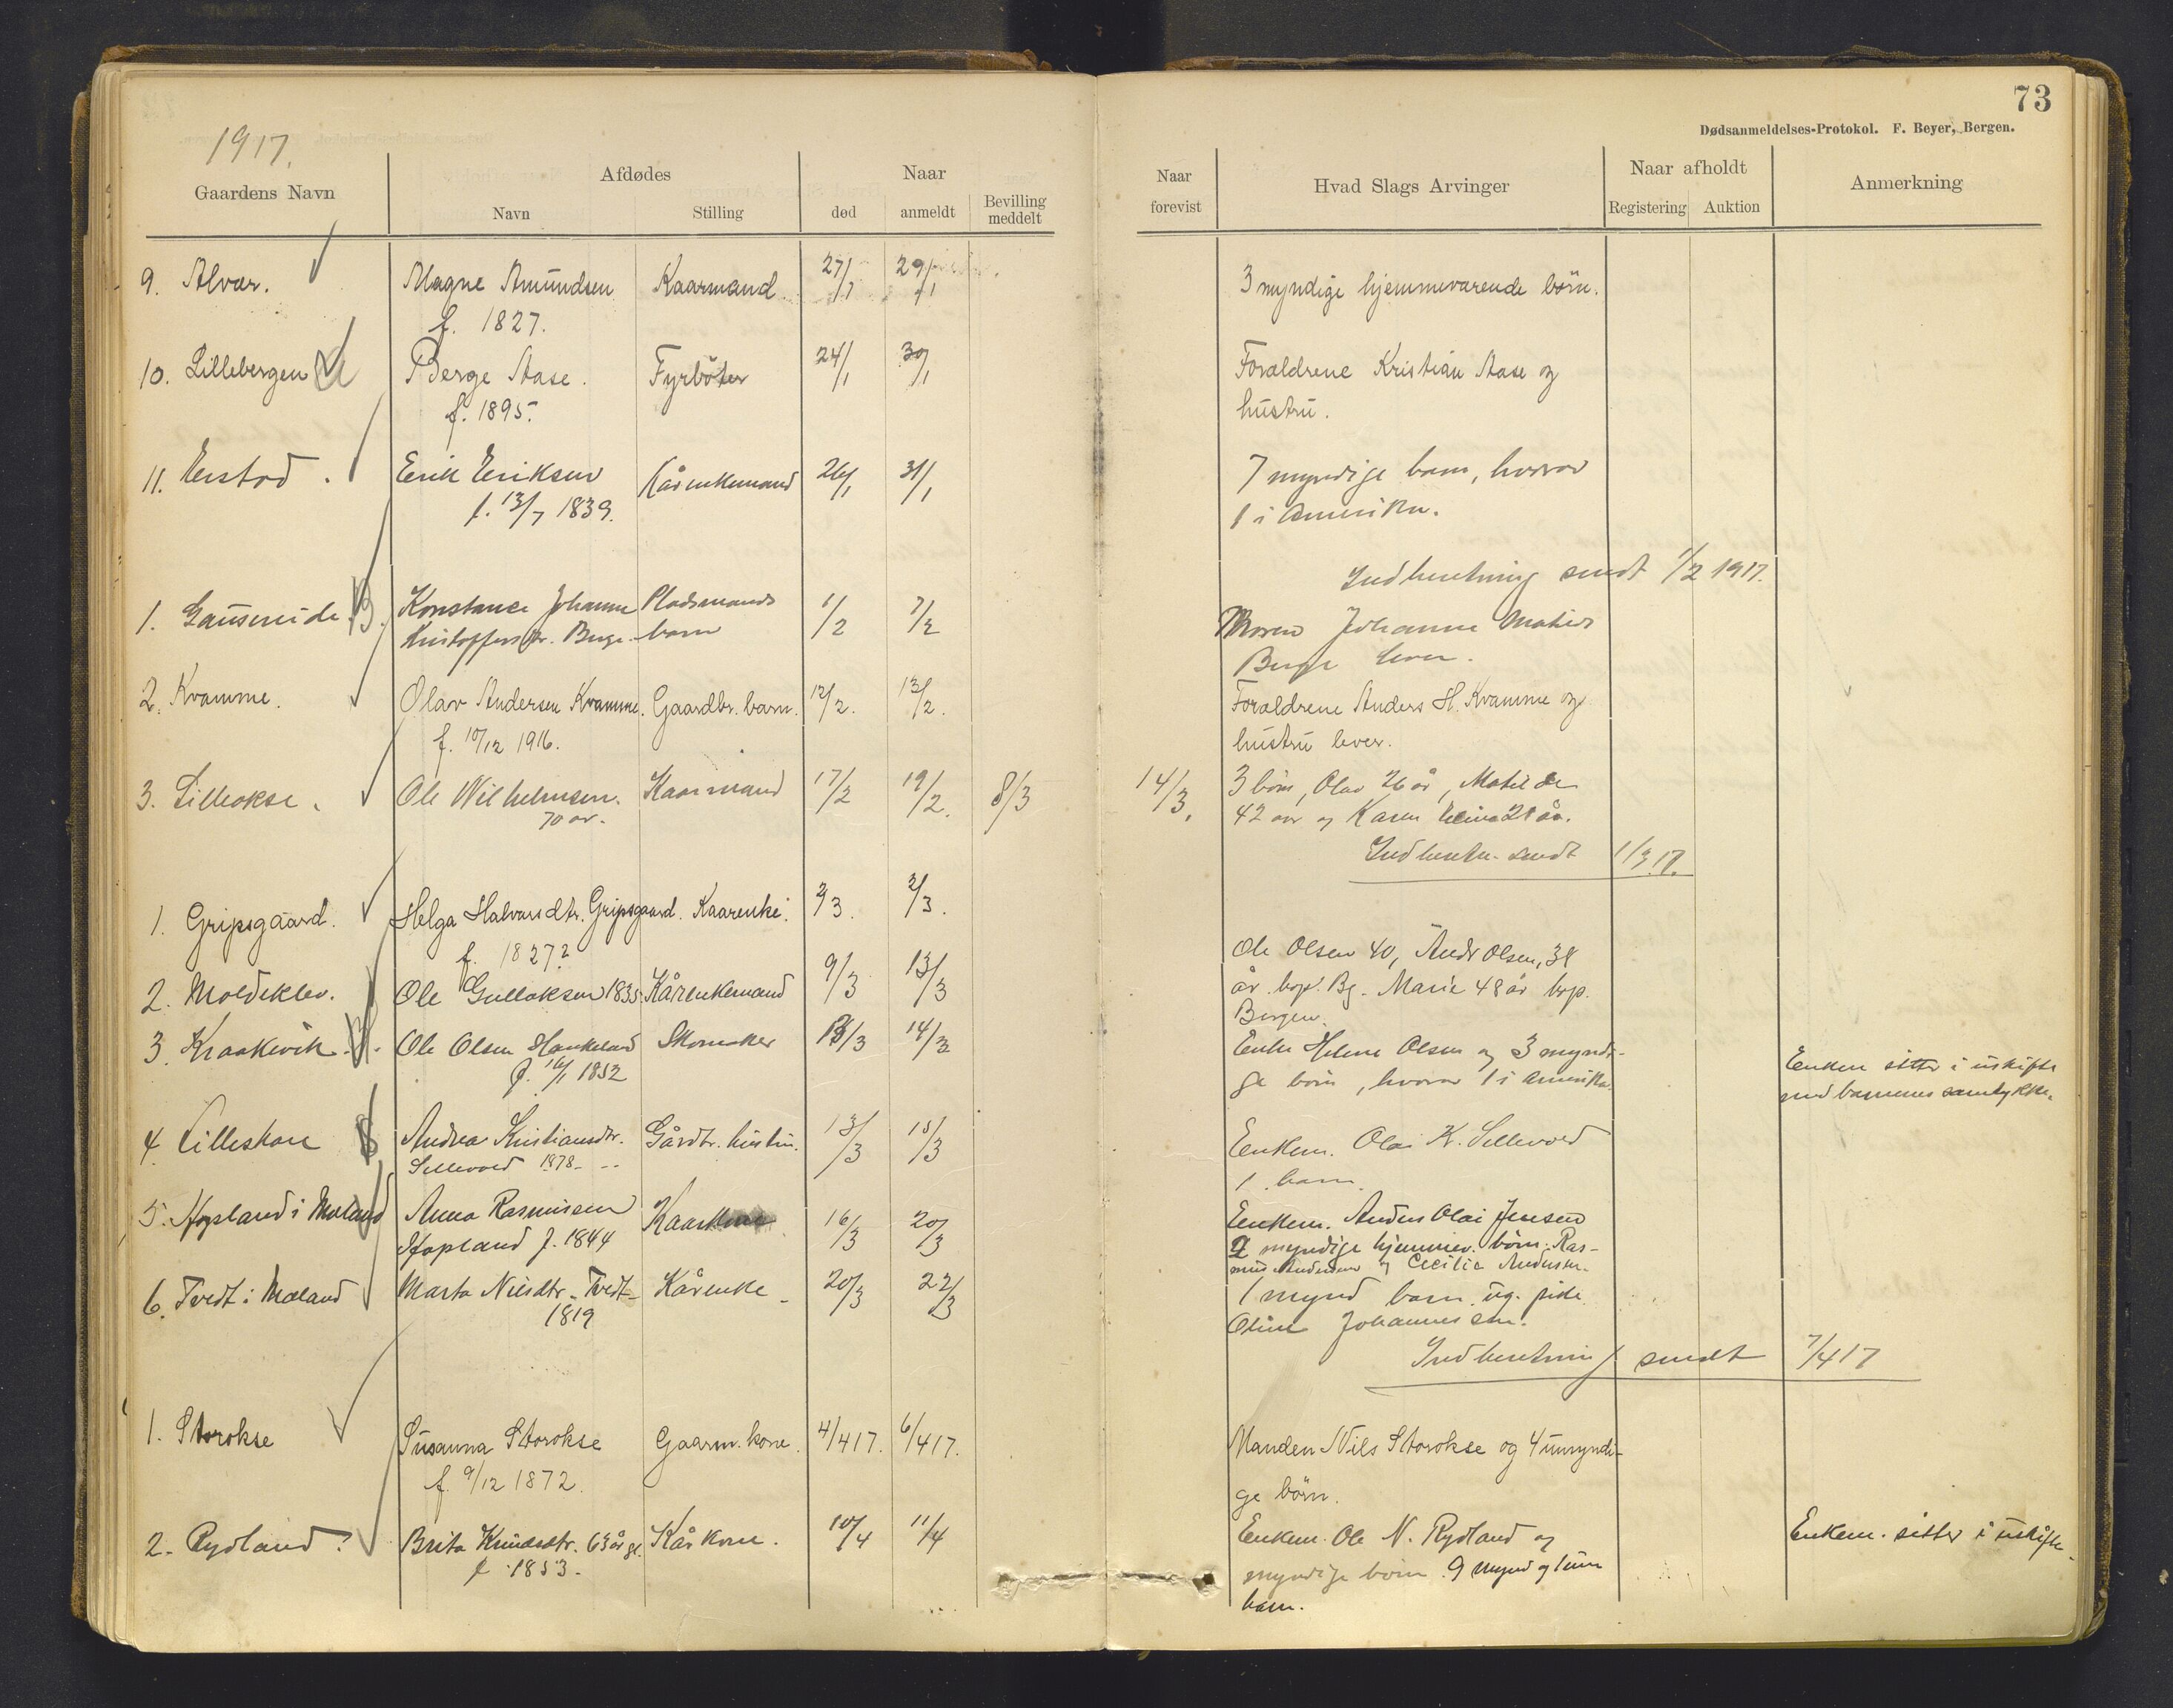 73
Dødsanmeldelses-Protokol. F. Beyer, Bergen.
1917.
Gaardens Navn
Afdødes
Navn
Stilling
Naar
død
anmeldt
Bevilling meddelt
Naar forevist
Hvad Slags Arvinger
Naar afholdt
Registering
Auktion
Anmerkning
9. Alvær. Magne Amundsen Kaarmand 27/1 29/1 3 myndige hjemmeværende børn.
f. 1827.
10. Lillebergen Berge Aase. Fyrböter 24/1 30/1 Forældrene Kristian Aase og
f. 1895. hustru.
11. Erik Eriksen Kårenkemand 26/1 31/1 7 myndige barn, hvorav
f. 13/7 1839. 1 i Amerika.
Indberetning sendt 1/2 1917.
1. Konstance Johanne Pladsmands 1/2 7/2 Moren Johanne
barn Berge lever.
2. Kvamme. Olav Andersen Kvamme. Gaardbr. barn. 12/2. 13/2. Forældrene Anders H. Kvamme og
f. 10/12 1916. hustru lever.
3. Lilleokse. Ole Wilhelmsen. Kaarmand 17/2 19/2. 8/3 14/3. 3 börn, Olav 26 år, Matilde
70 år. 42 aar og Karen år.
Indberetn. sendt 1/3 17.
1. Gripsgaard. Helga Halvarsdtr. Gripsgaard. Kaarenke. 2/3. 2/3.
f. 1827?
2. Moldeklev. Ole Gulloksen 1835 Kårenkemand 9/3 13/3 Ole Olsen 40, Andr Olsen, 38
år bop. Bg. Marie 48 år bop.
Bergen.
3. Kraakevik Ole Olsen Haukeland Skomaker 13/3 14/3 Enke Helene Olsen og 3 myndi-
f. 16/1 1852 ge börn, hvorav 1 i Amerika. Enken sitter i uskifte
med barnenes samtykke.
4. Lilleskare Andrea Kristiansdtr. Gårdbr. hustru. 13/3 15/3 Enkem. Olai K. Sellevold
Sellevold 1878 1 barn.
5. Hopland i Mæland Anna Rasmusen Kaarkone 16/3 20/3 Enkem. Anders Olai Jensen
Hopland f. 1844 2 myndige hjemmev. börn: Ras-
mus Andersen og Cecilie Andersen.
6. Tvedt i Mæland Marta Nilsdtr. Tvedt Kårenke 20/3 22/3 1 mynd barn ug. pike
1819 Oline Johannesen.
Indberetning sendt 7/4 17
1. Storokse Susanna Storokse Gaarm. kone. 4/4 17. 6/4 17. Manden Nils Storokse og 4 umyndi-
f. 9/12 1872. ge börn.
2. Rydland? Brita Knudsdtr. 63 år gl. Kårkone. 10/4 11/4 Enkem. Ole N. Rydland og Enkem. sitter i uskifte.
f. 1853. myndige börn. 9 mynd og 1 um
barn.